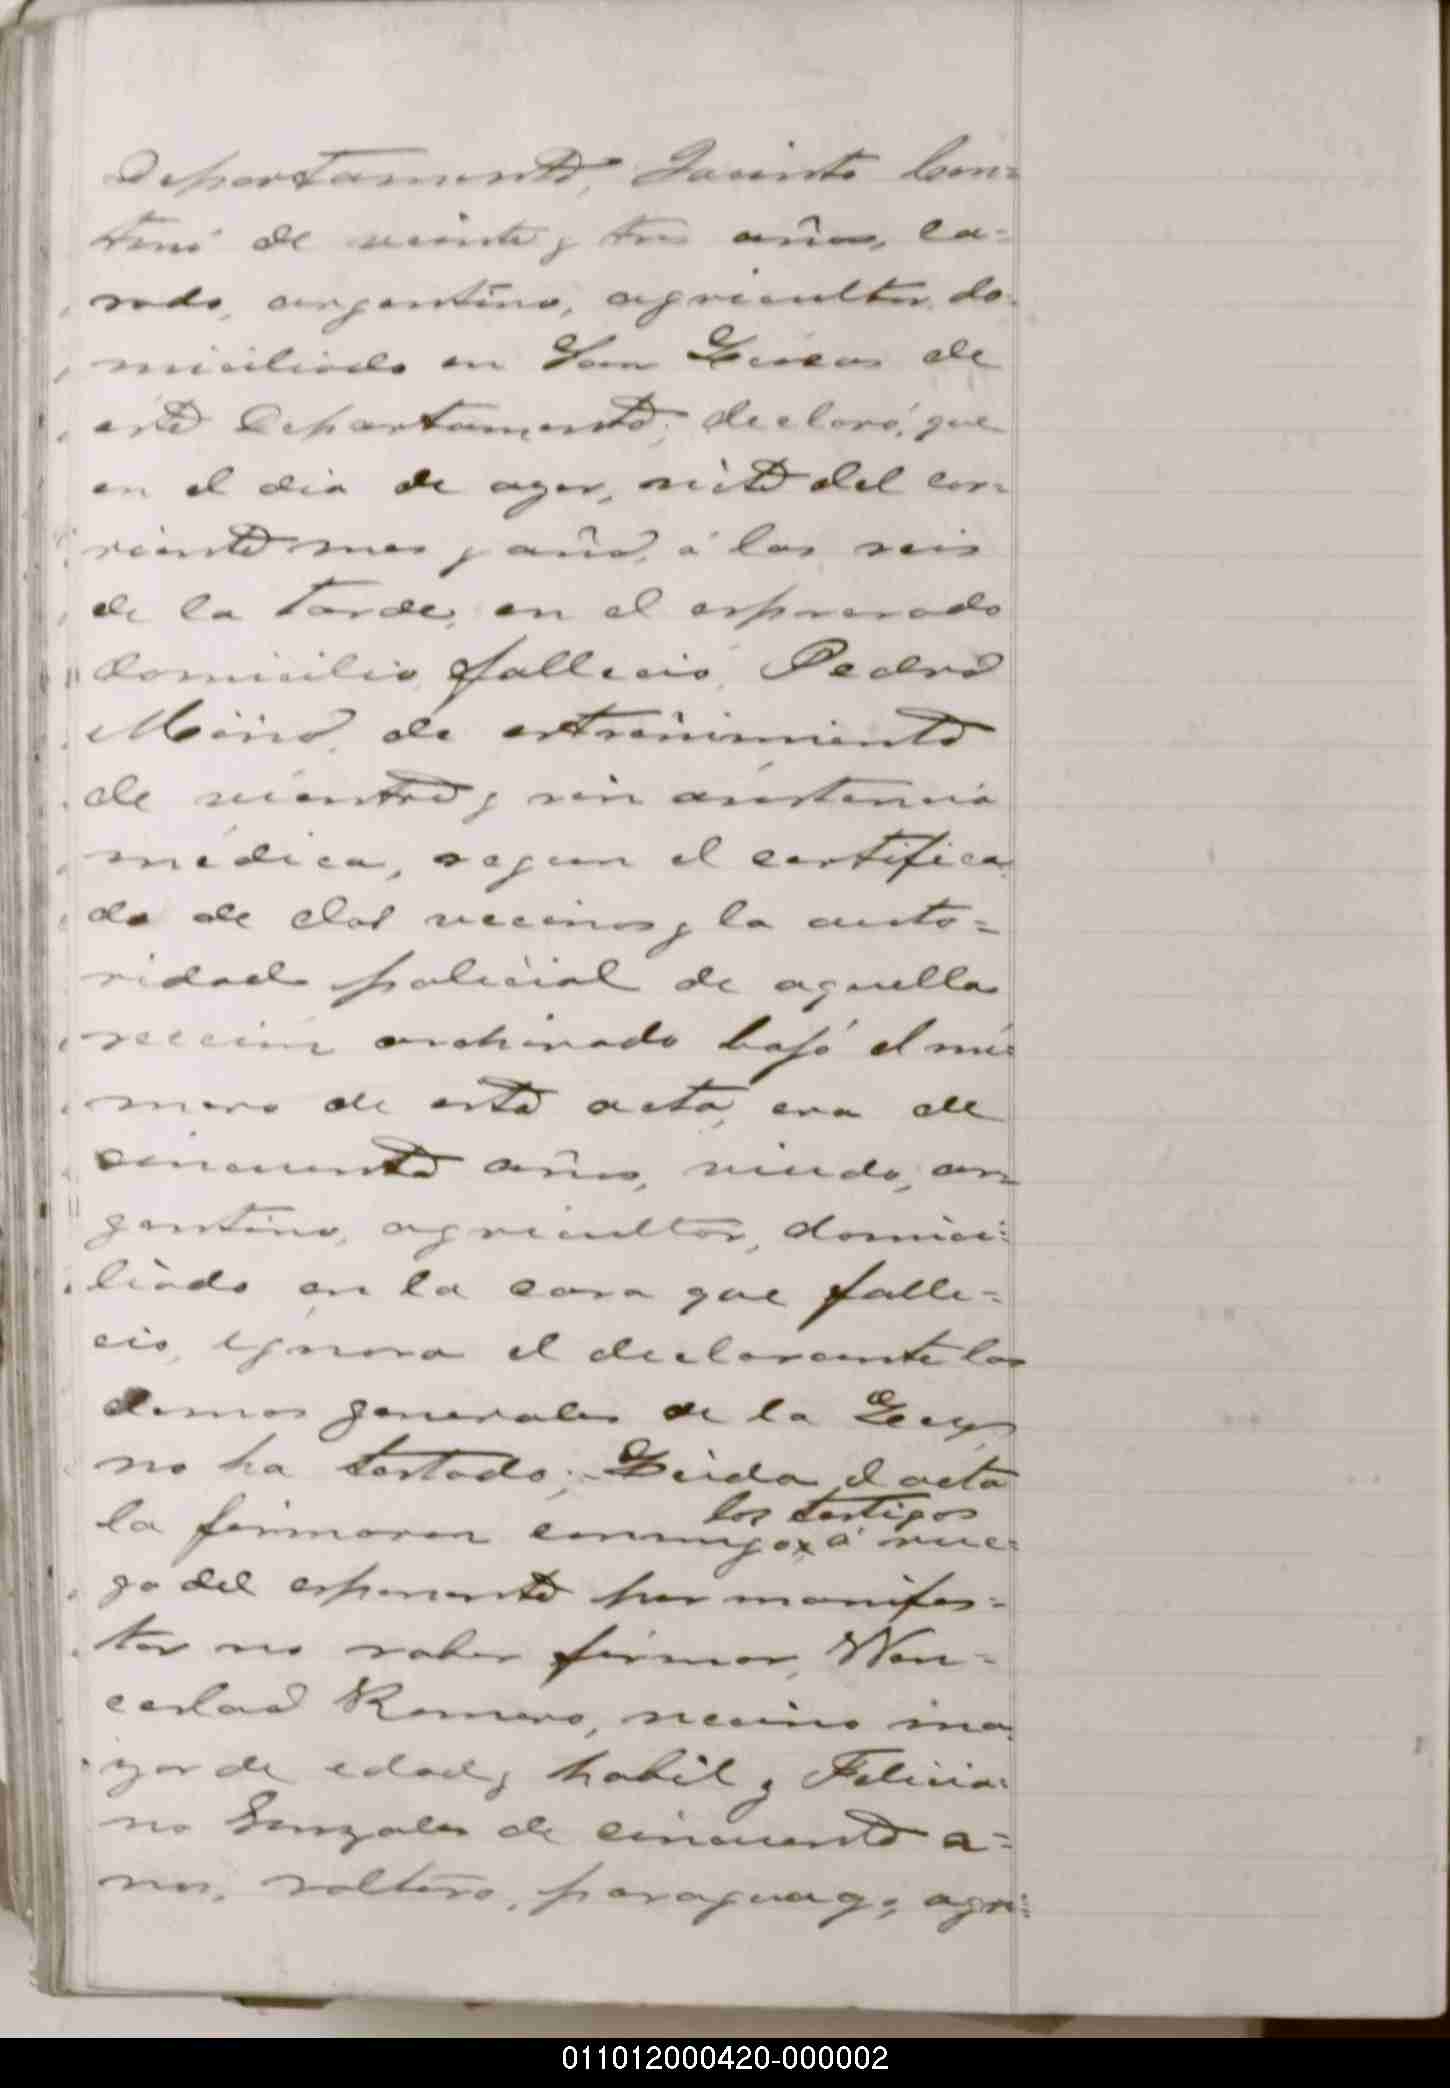 Departamento, Jacinto Con=
tené de veinte y tres años, ca=
sado, argentino, agricultor, do=
miciliado en San Lucas de
este Departamento; declaró, que
en el dia de ayer, siete del cor=
riente mes y año, á las seis
de la tarde, en el espresado
domicilio, falleció, Pedro
Miño, de estreñimiento
de vientre y sin asistencia
médica, segun el certifica
do de dos vecinos y la auto=
ridad policial de aquella
seccion archivado bajó el nú=
mero de este acta, era de
cincuenta años, viudo, ar
gentino, agricultor, domici=
liado en la casa que falle=
ció, ignora el declarante las
demas generales de la Ley,
no ha testado; Leida el acta
la firmaron conmigo x á rue=
los testigos
go del esponente por manifes=
tar no saber firmar, Wen=
ceslao Romero, vecino ma
yor de edad, habil y Felicia=
no Gonzales de cincuenta a=
nos, soltero, paraguayo, agri=
011012000420-000002